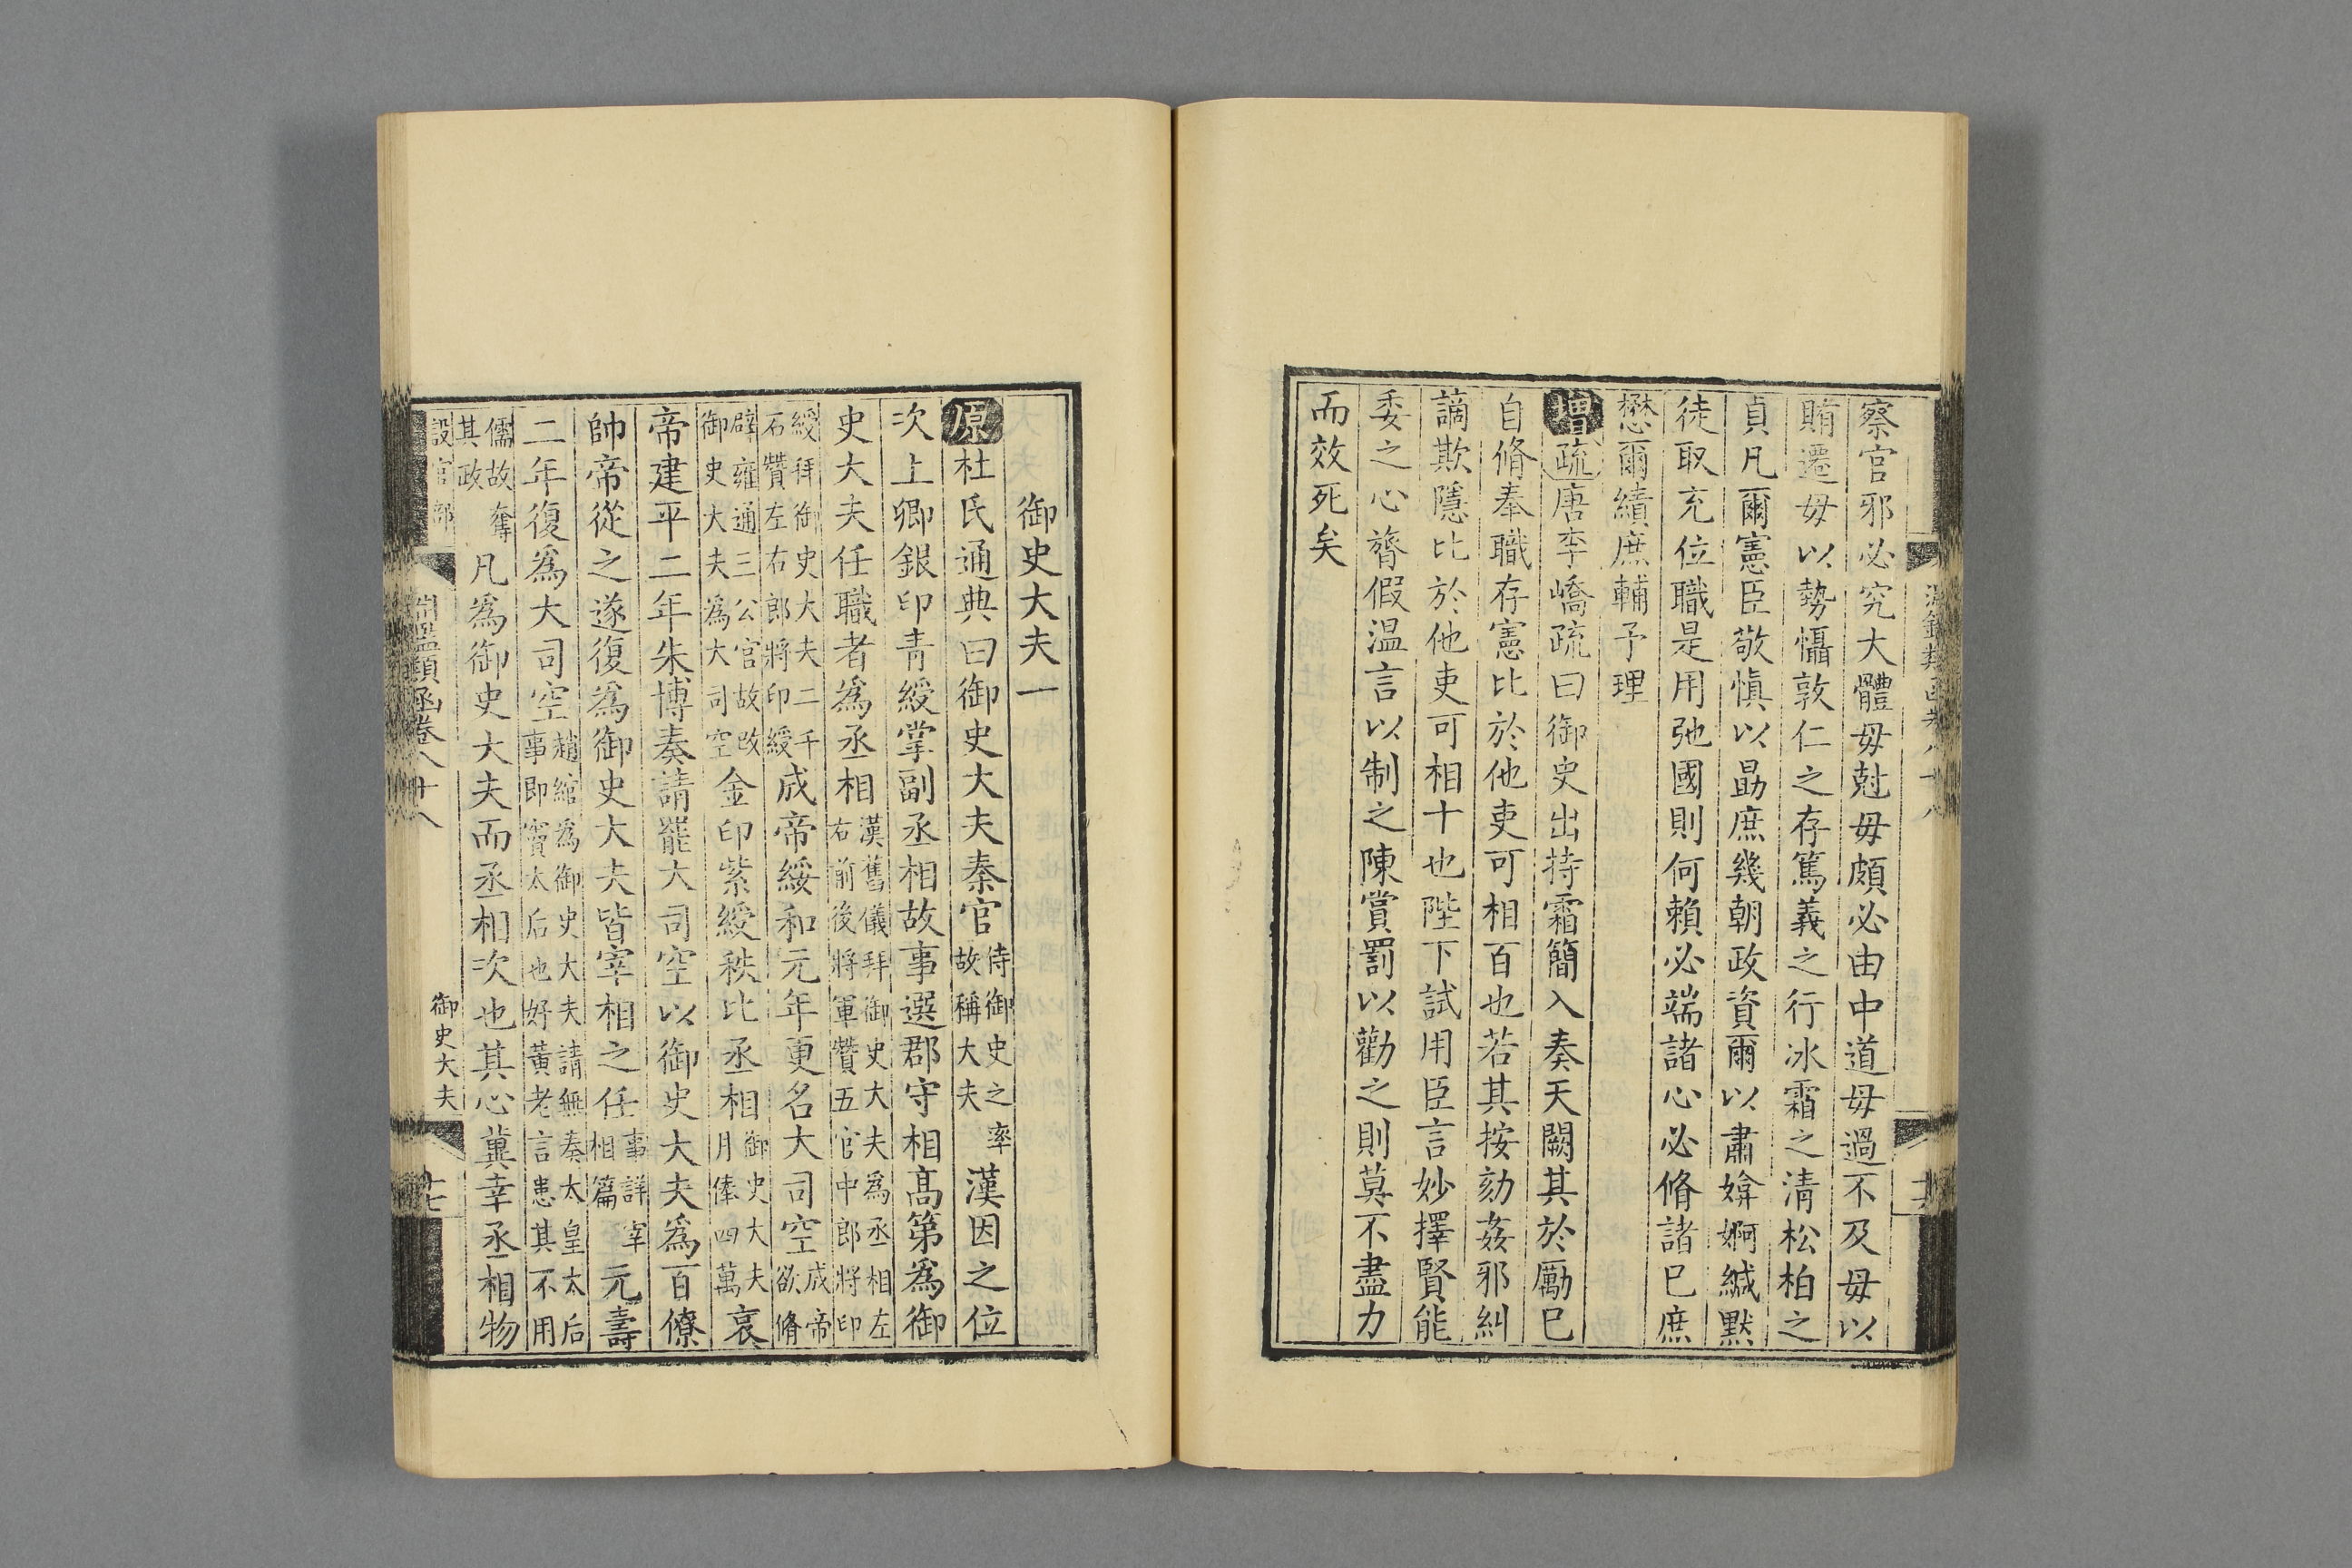 察官邪必究大體毋尅毋頗必由中道毋過不及毋以
賄遷毋以勢懾敦仁之存篤義之行冰霜之清松柏之
貞凡爾憲臣敬慎以勗庶幾朝政資爾以肅媕婀緘默
徒取充位職是用弛國則何賴必端諸心必脩諸己庶
懋爾績庶輔予理
增疏唐李嶠疏曰御史出持霜簡入奏天闕其於厲己
自脩奉職存憲比於他吏可相百也若其按劾姦邪糾
謫欺隱比於他吏可相十也陛下試用臣言妙擇賢能
委之心膂假温言以制之陳賞罰以勸之則莫不盡力
而效死矣
御史大夫一
原杜氏通典曰御史大夫秦官侍御史之率故稱大夫漢因之位
次上卿銀印青綬掌副丞相故事選郡守相高第為御
史大夫任職者為丞相漢舊儀拜御史大夫為丞相左右前後將軍贊五官中郎將印
綬拜御史大夫二千石贊左右郎將印綬成帝綏和元年更名大司空成帝欲脩
辟雍通三公官故改御史大夫為大司空金印紫綬秩比丞相御史大夫月俸四萬哀
帝建平二年朱博奏請罷大司空以御史大夫為百僚
帥帝從之遂復為御史大夫皆宰相之任事詳宰相篇元壽
二年復為大司空趙綰為御史大夫請無奏太皇太后事即竇太后也好黃老言患其不用
儒故奪其政凡為御史大夫而丞相次也其心冀幸丞相物
設官部
淵鑑類函卷八十八
御史大夫
十七